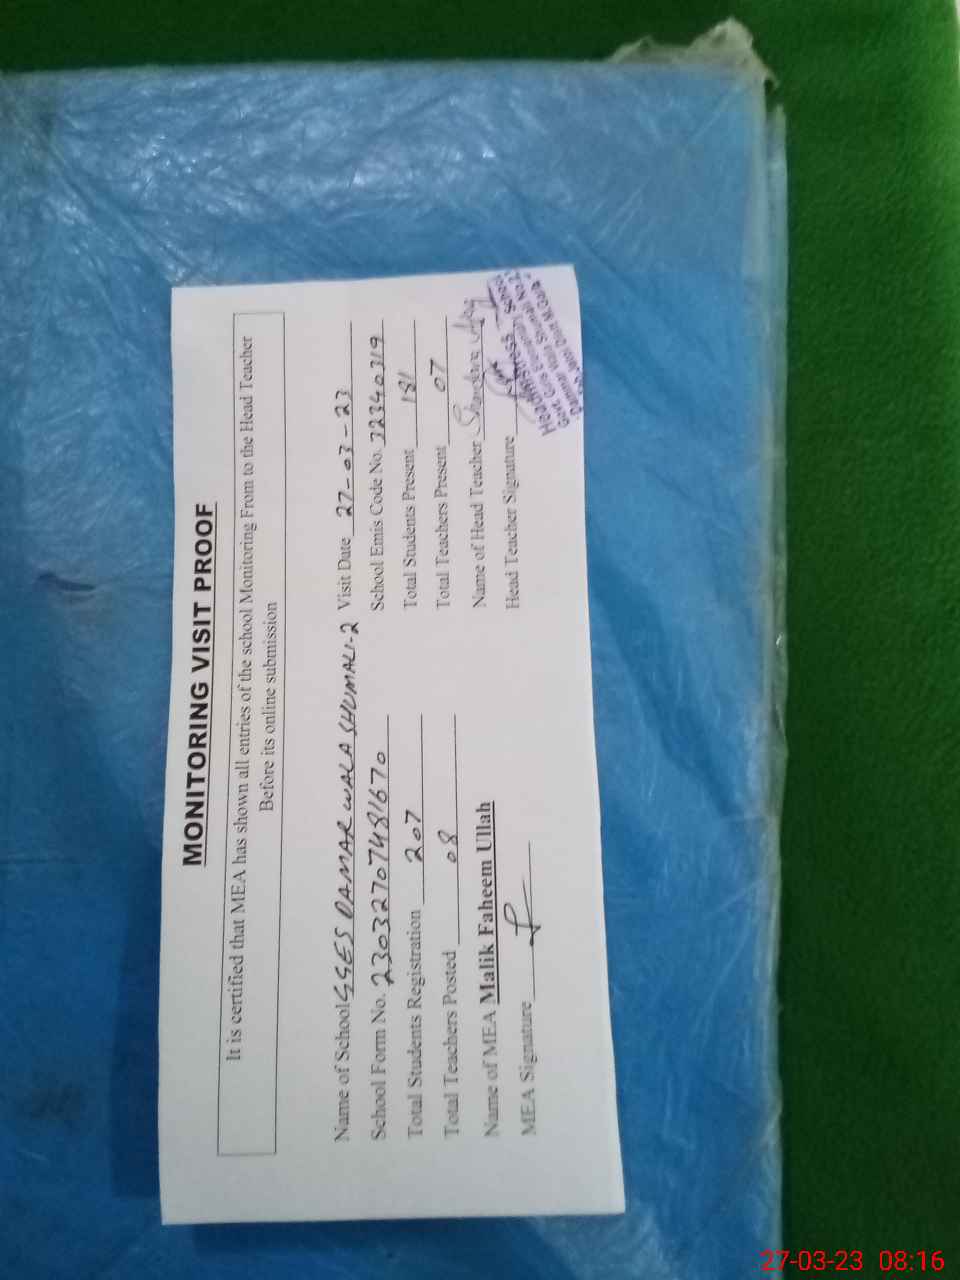 MONITORING VISIT PROOF
It is certified that MEA has shown all entries of the school Monitoring From to the Head Teacher
Before its online submission
Name of School GGES DAMAR WALA SHUMALI-2 Visit Date 27-03-23
School Form No. 23032707481670 School Emis Code No. 32340319
Total Students Registration 207 Total Students Present 181
Total Teachers Posted 08 Total Teachers Present 07
Name of MEA Malik Faheem Ullah Name of Head Teacher
MEA Signature Head Teacher Signature
Headmistress
Govt. Girls Elementary School
Dammar Wala Shumali No.2
27-03-23 08:16